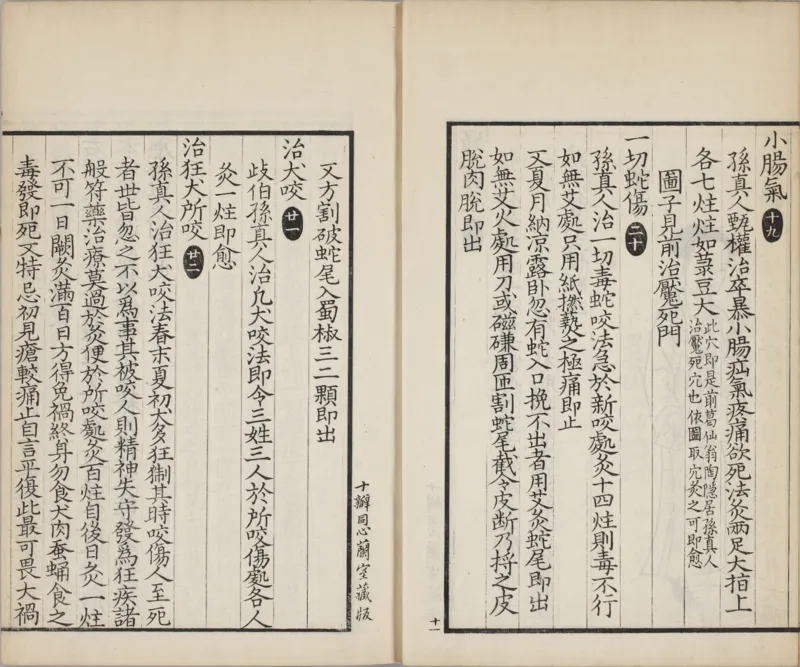 小腸氣 十九
孫真人甄權治卒暴小腸疝氣疼痛欲死法灸兩足大拍上
各七炷炷如菉豆大 此穴即是前葛仙翁陶隱居孫真人
治魘死穴也依圖取穴灸之可即愈
圖子見前治魘死門
一切蛇傷 二十
孫真人治一切毒蛇咬法急於新咬處灸十四炷則毒不行
如無艾處只用紙撚爇之極痛即止
又夏月納凉露卧忽有蛇入口挽不出者用艾灸蛇尾即出
如無艾火處用刀或磁磏周匝割蛇尾截令皮断乃捋之皮
脫肉脫即出
十一
又方割破蛇尾入蜀椒三二顆即出
治犬咬 廿一
歧伯孫真人治凡犬咬法即令三姓三人於所咬傷處各人
灸一炷即愈
治狂犬所咬 廿二
孫真人治狂犬咬法春末夏初犬多狂猘其時咬傷人至死
者世皆忽之不以爲事其被咬人則精神失守發爲狂疾諸
般符藥治療莫過於灸便於所咬處灸百炷自後日灸一炷
不可一日闕灸滿百日方得免禍終身勿食犬肉蚕蛹食之
毒發即死又特忌初見瘡較痛止自言平復此最可畏大禍
十瓣同心蘭室藏版